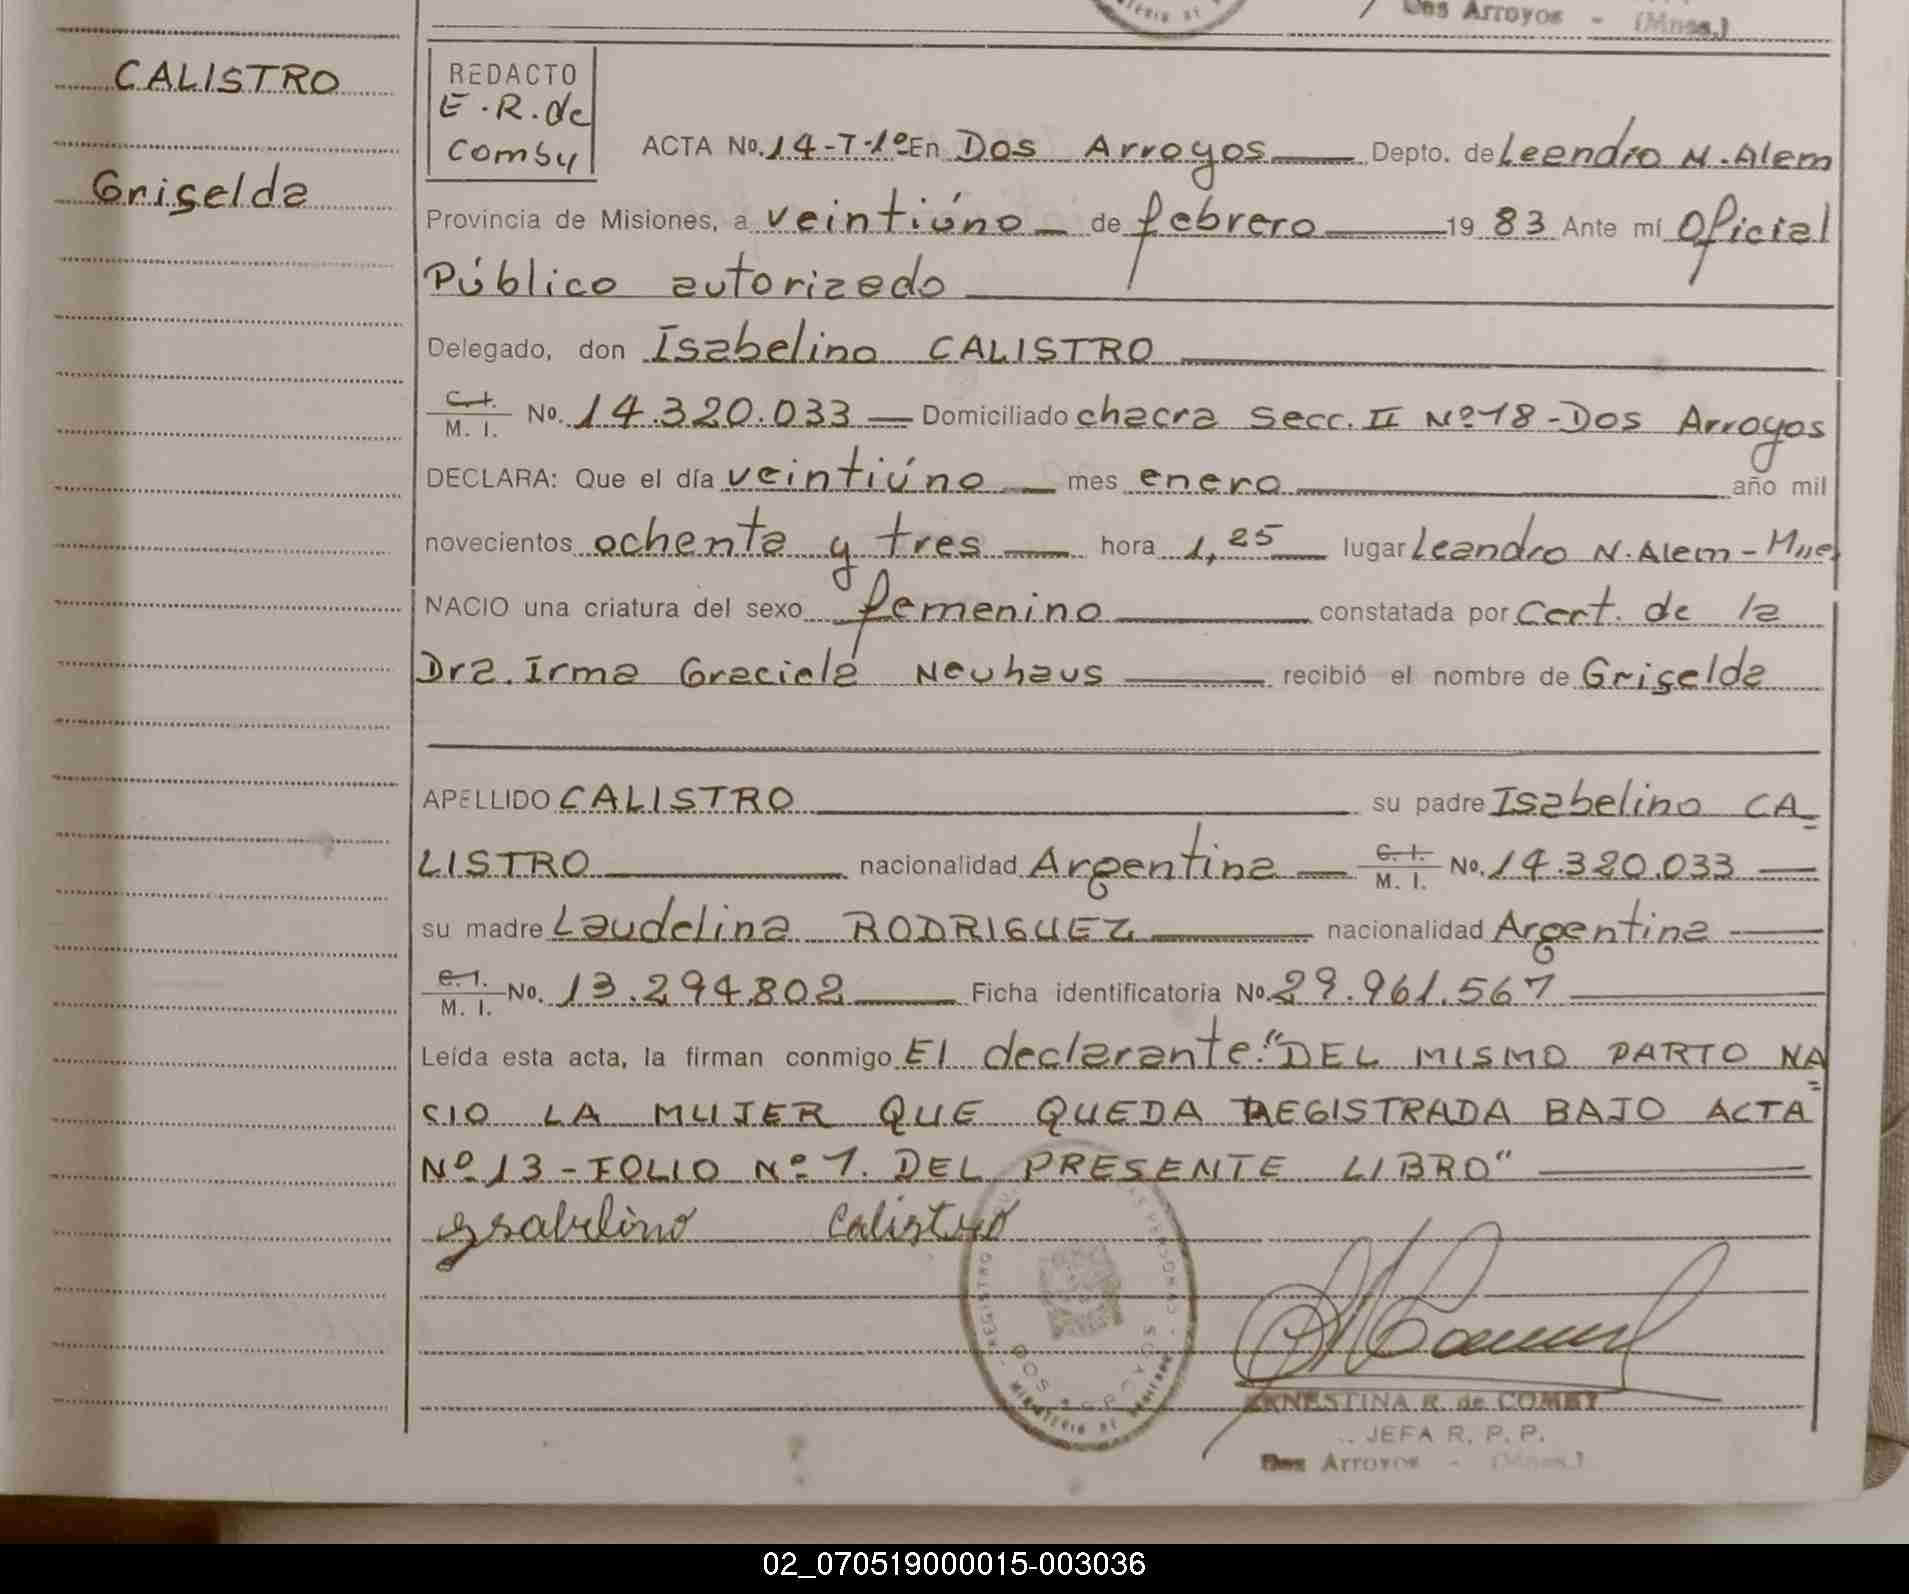 Dos Arroyos - (Mnes.)
CALISTRO
Griselda
REDACTO
E.R.de
Comby
ACTA No. 14-T-1º En Dos Arroyos Depto. de Leandro N. Alem
Provincia de Misiones, a veintiúno de febrero 19 83 Ante mí Oficial
Público autorizado
Delegado, don Isabelino CALISTRO
C.I. M. I. No. 14.320.033 Domiciliado chacra Secc. II Nº 18 - Dos Arroyos
DECLARA: Que el día veintiúno mes enero año mil
novecientos ochenta y tres hora 1,25 lugar Leandro N. Alem -
NACIO una criatura del sexo femenino constatada por Cert. de la
Dra. Irma Graciela Neuhaus recibió el nombre de Griselda
APELLIDO CALISTRO su padre Isabelino CA=
LISTRO nacionalidad Argentina C.I. M. I. No. 14.320.033
su madre Laudelina RODRIGUEZ nacionalidad Argentina
C.I. M. I. No. 13.294.802 Ficha identificatoria No. 29.961.567
Leída esta acta, la firman conmigo El declarante. "DEL MISMO PARTO NA=
CIO LA MUJER QUE QUEDA REGISTRADA BAJO ACTA
Nº 13 - FOLIO Nº 7. DEL PRESENTE LIBRO"
Ysabelino Calistro
REGISTRO LAS PERSONAS
DOS ARROYOS
MINISTERIO DE GOBIERNO
ERNESTINA R. de COMBY
JEFA R. P. P.
Dos Arroyos - (Mnes.)
02_070519000015-003036